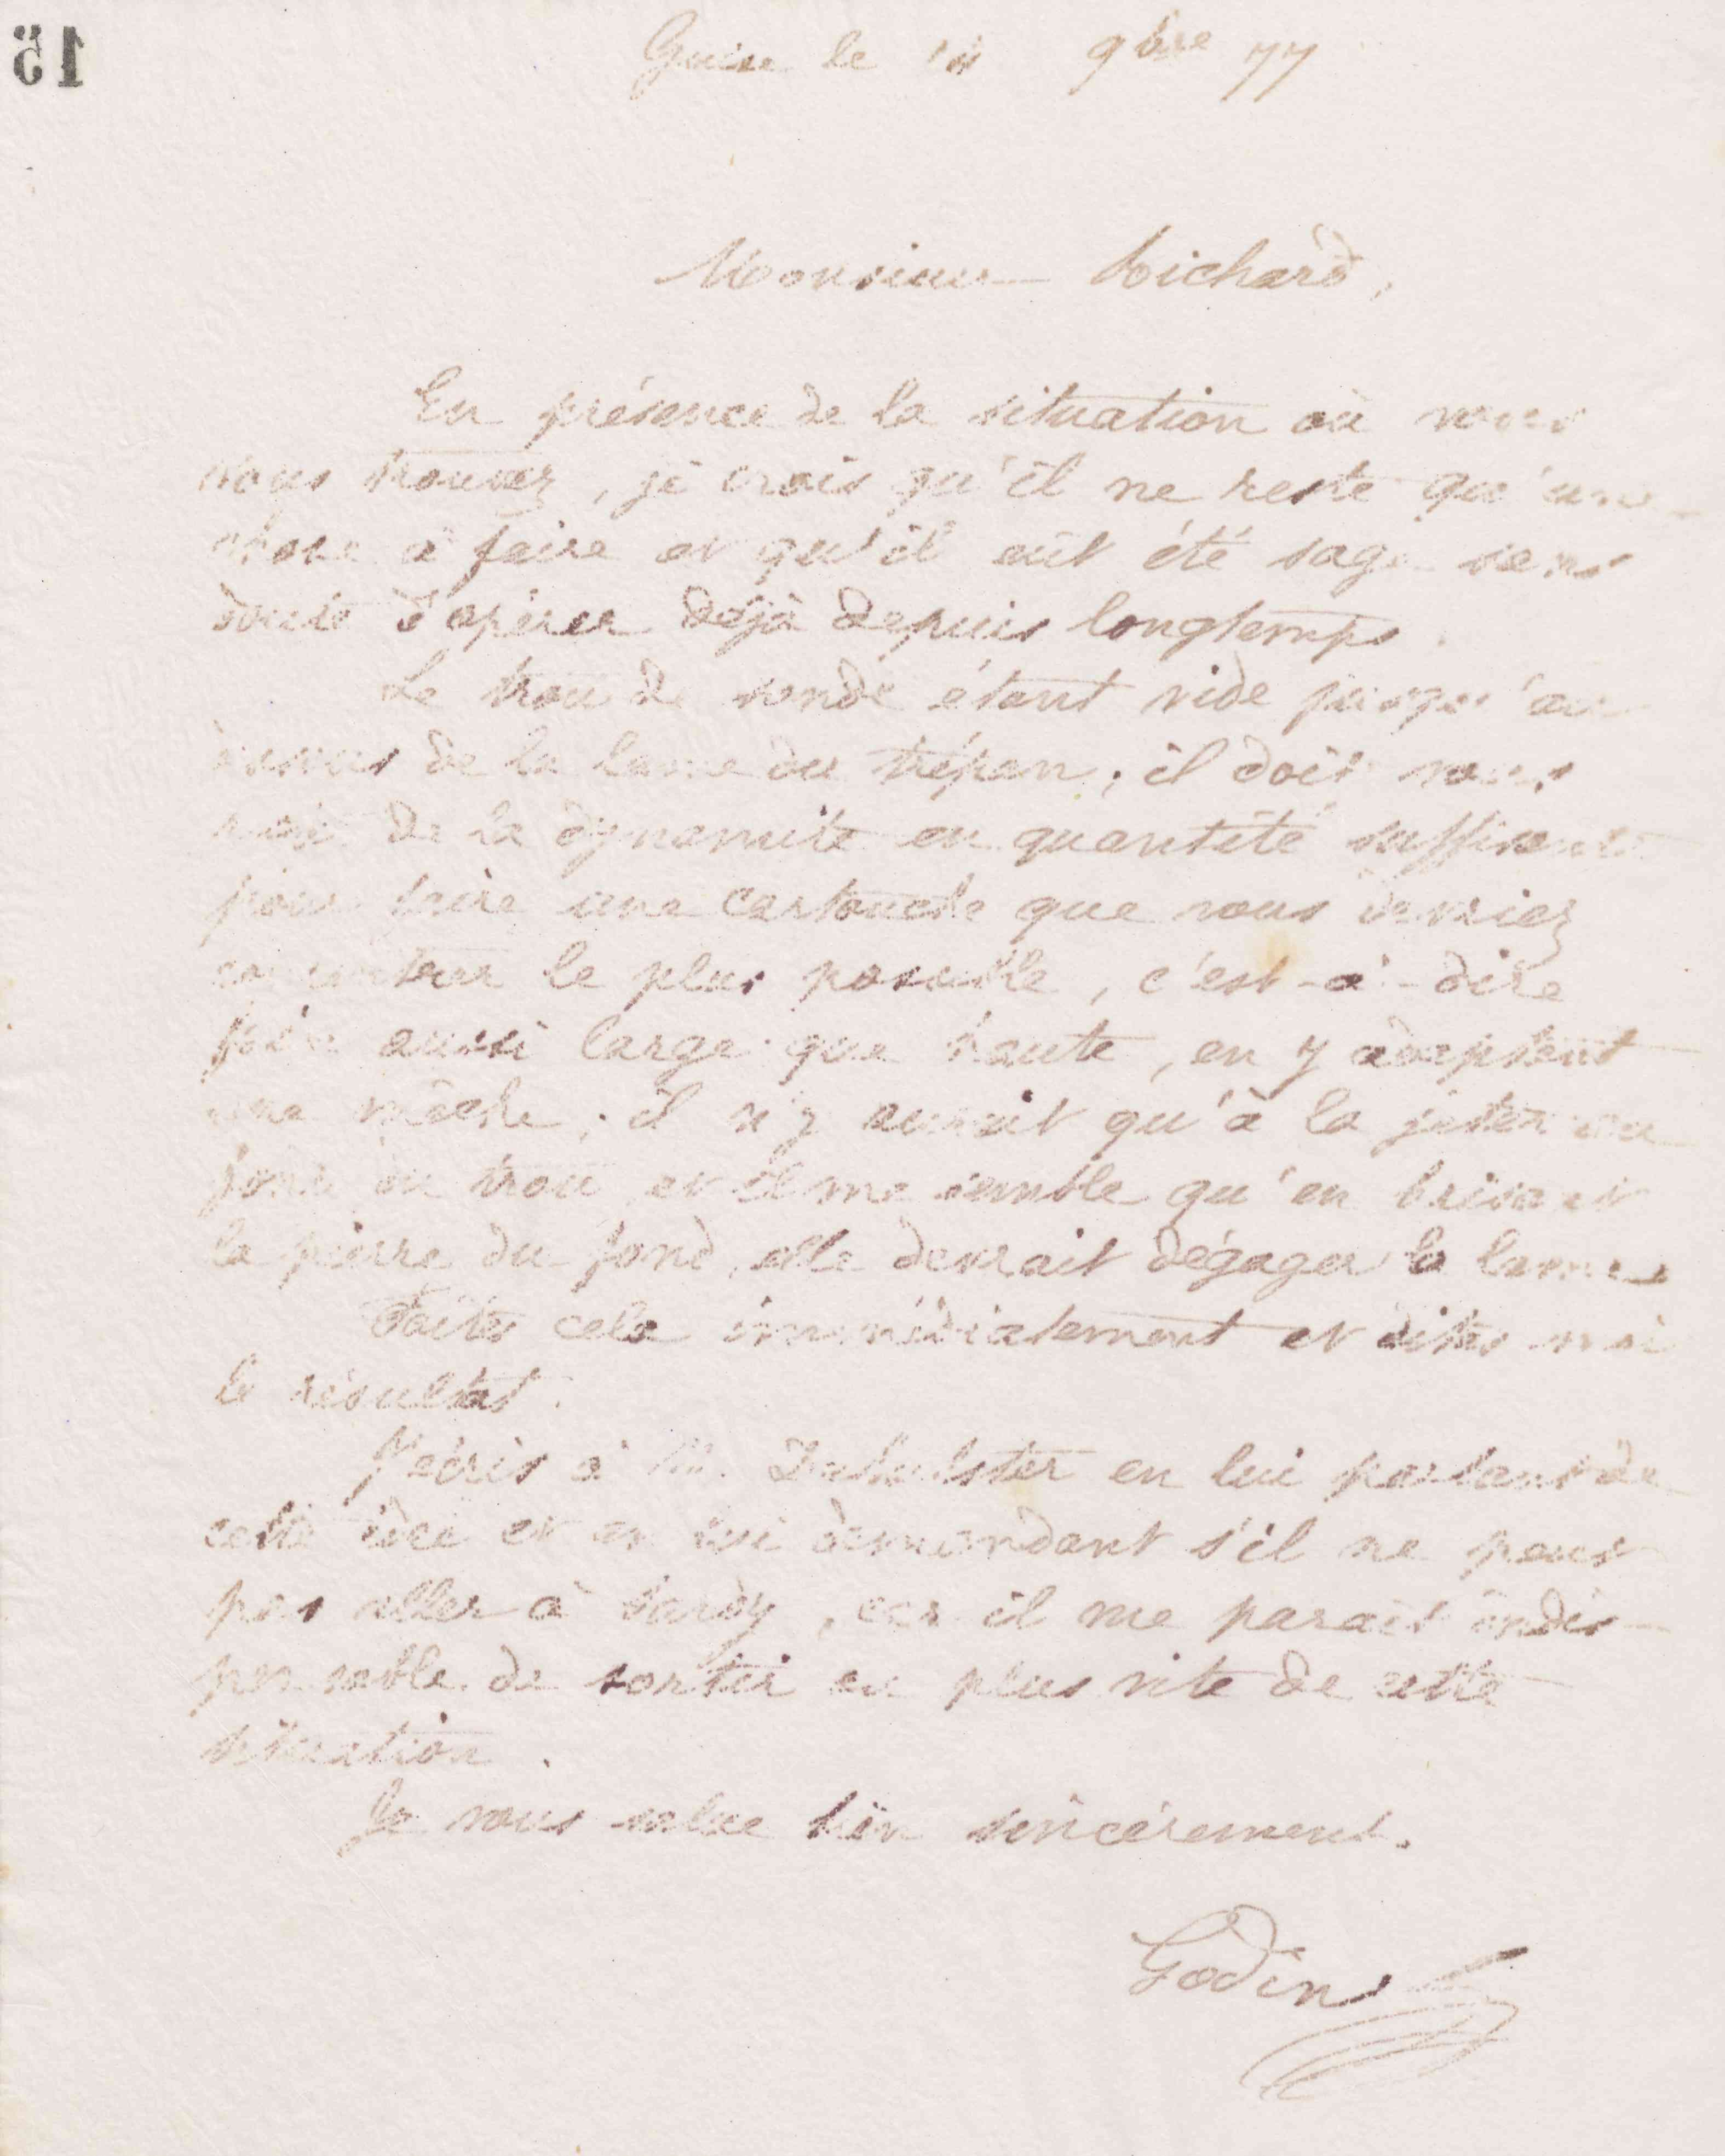 15
Guise le 14 9bre 77
Monsieur Richard,
En présence de la situation où vous
vous trouvez, je crois qu'il ne reste qu'une
chose à faire et qu'il eût été sage sans
doute d'opérer déjà depuis longtemps.
Le trou de sonde étant vide jusqu'au
dessus de la lame du trépan, il doit vous
de la dynamite en quantité suffisante
pour faire une cartouche que vous devriez
concentrer le plus possible, c'est-à-dire
faire aussi large que haute, en y adaptant
une mèche, il n'y aurait qu'à la jeter au
fond du trou et il me semble qu'en brisant
la pierre du fond, elle devrait dégager la lame
Faites cela immédiatement et dites moi
le résultat.
J'écris à M. en lui parlant de
cette idée et en lui demandant s'il ne peut
pas aller à Sardy, car il me parait indis-
pensable de sortir au plus vite de cette
situation.
Je vous salue bien sincèrement.
Godin